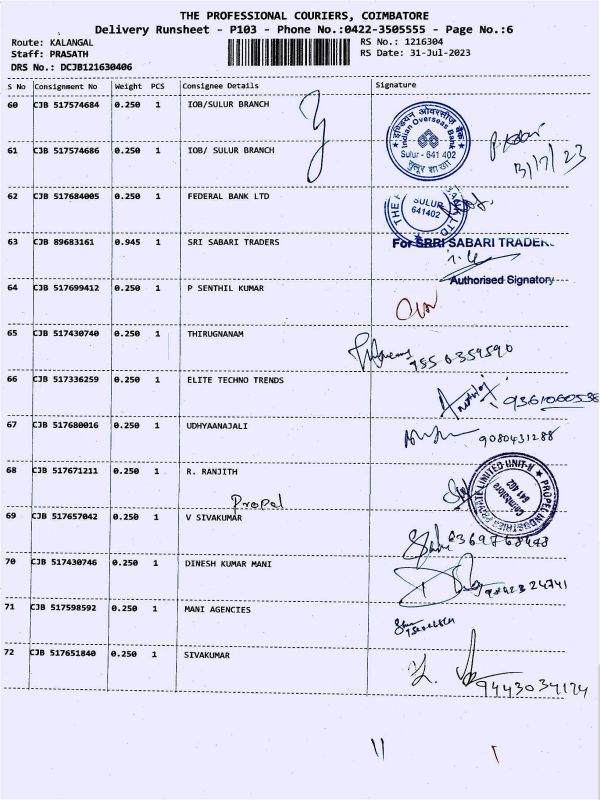 THE PROFESSIONAL COURIERS, COIMBATORE
Delivery Runsheet - P103 - Phone No.:0422-3505555 - Page No.:6
Route: KALANGAL
RS No.: 1216304
Staff: PRASATH
RS Date: 31-Jul-2023
DRS No.: DCJB121630406
S No Consignment No Weight PCS Consignee Details Signature
60 CJB 517574684 0.250 1 IOB/SULUR BRANCH
इण्डियन ओवरसीज़ बैंक
Indian Overseas Bank
Sulur - 641 402
सुलूर शाखा
61 CJB 517574686 0.250 1 IOB/ SULUR BRANCH
62 CJB 517684005 0.250 1 FEDERAL BANK LTD
SULUR
641402
63 CJB 89683161 0.945 1 SRI SABARI TRADERS
For SRRI SABARI TRADER
Authorised Signatory
64 CJB 517699412 0.250 1 P SENTHIL KUMAR
65 CJB 517430740 0.250 1 THIRUGNANAM
66 CJB 517336259 0.250 1 ELITE TECHNO TRENDS
67 CJB 517680016 0.250 1 UDHYAANAJALI
9080431288
68 CJB 517671211 0.250 1 R. RANJITH
Propel
PROPEL INDUSTRIES PRIVATE LIMITED UNIT-V
Coimbatore
641 402
69 CJB 517657042 0.250 1 V SIVAKUMAR
70 CJB 517430746 0.250 1 DINESH KUMAR MANI
71 CJB 517598592 0.250 1 MANI AGENCIES
72 CJB 517651840 0.250 1 SIVAKUMAR